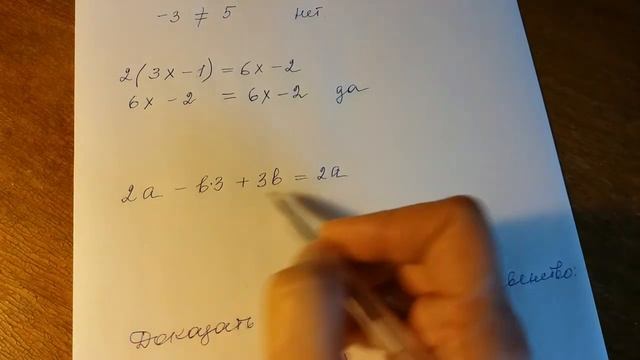 -3 ≠ 5 нет
2(3x-1) = 6x-2
6x - 2 = 6x-2 да
2a - b·3 + 3b = 2a
Доказать